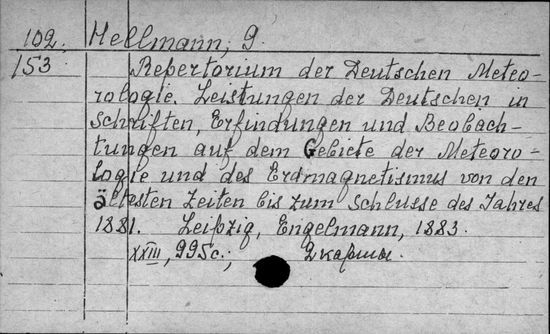 102. Hellmann, G.
153 Repertorium der Deutschen Meteo-
rologie. Leistungen der Deutschen in
Schriften, Erfindungen und Beobach-
tungen auf dem Gebiete der Meteoro-
logie und des Erdmagnetismus von den
ältesten Zeiten bis zum Schlusse des Jahres
1881. Leipzig, Engelmann, 1883.
XXIII, 995 с.; 2 карты.